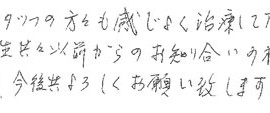 タッフの方々も感じよく治療して
生共々以前からのお知り合いの
今後共よろしくお願い致します